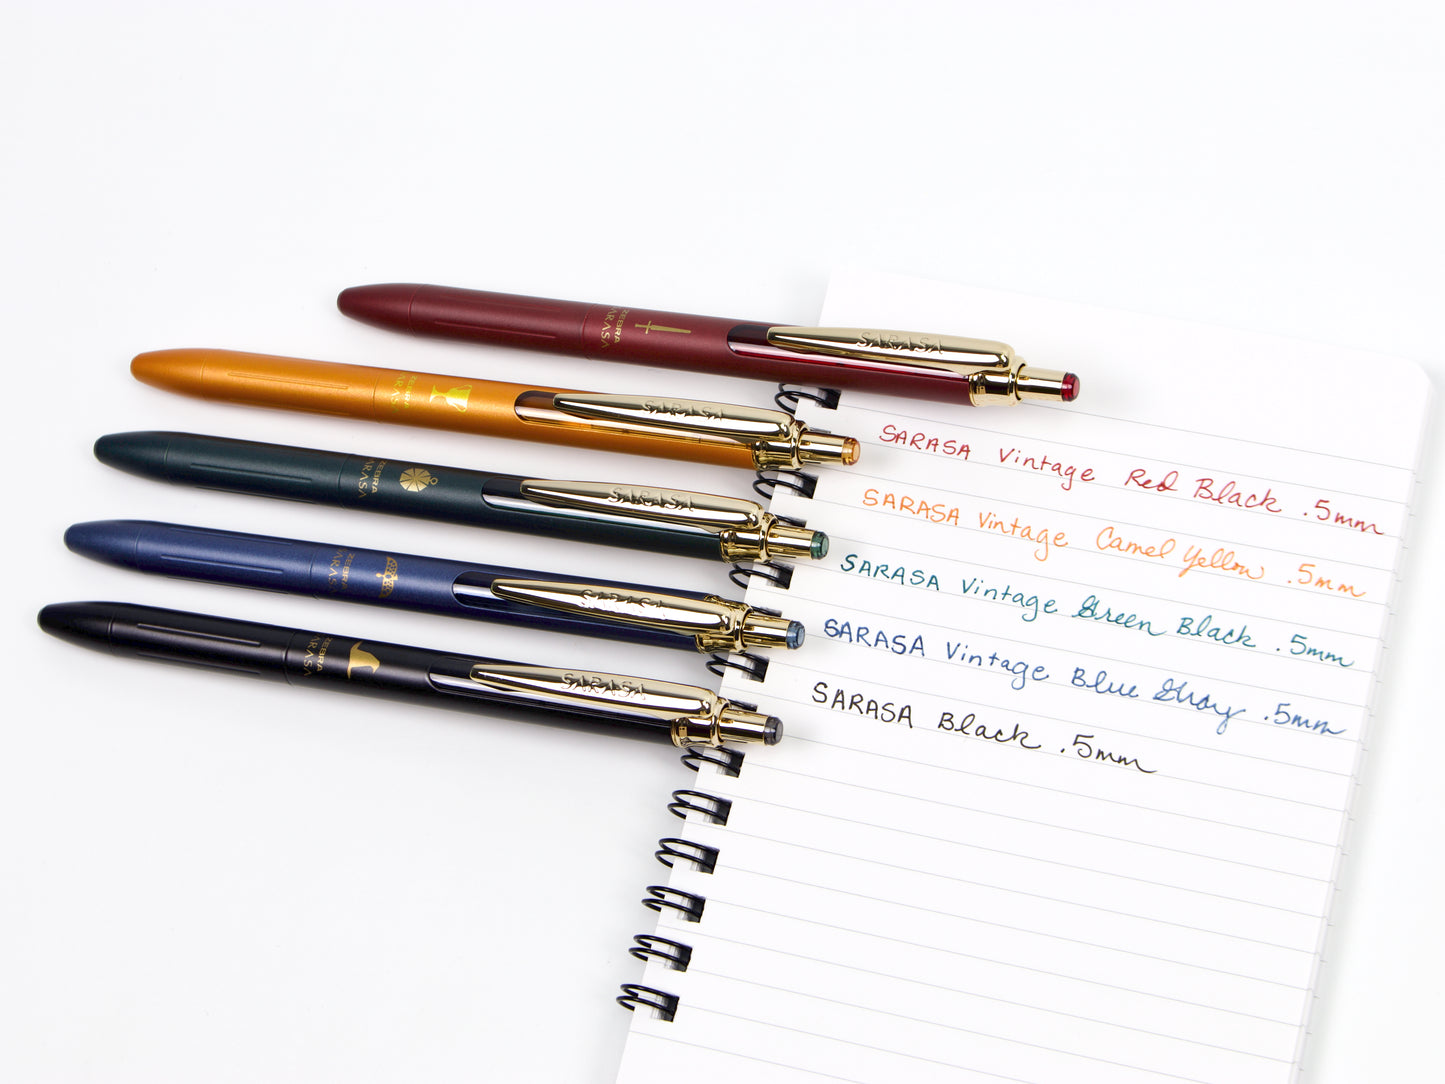 ZEBRA
SARASA
SARASA
ZEBRA
SARASA
SARASA
ZEBRA
SARASA
SARASA
ZEBRA
SARASA
SARASA
ZEBRA
SARASA
SARASA
SARASA Vintage Red Black .5mm
SARASA Vintage Camel Yellow .5mm
SARASA Vintage Green Black .5mm
SARASA Vintage Blue Gray .5mm
SARASA Black .5mm